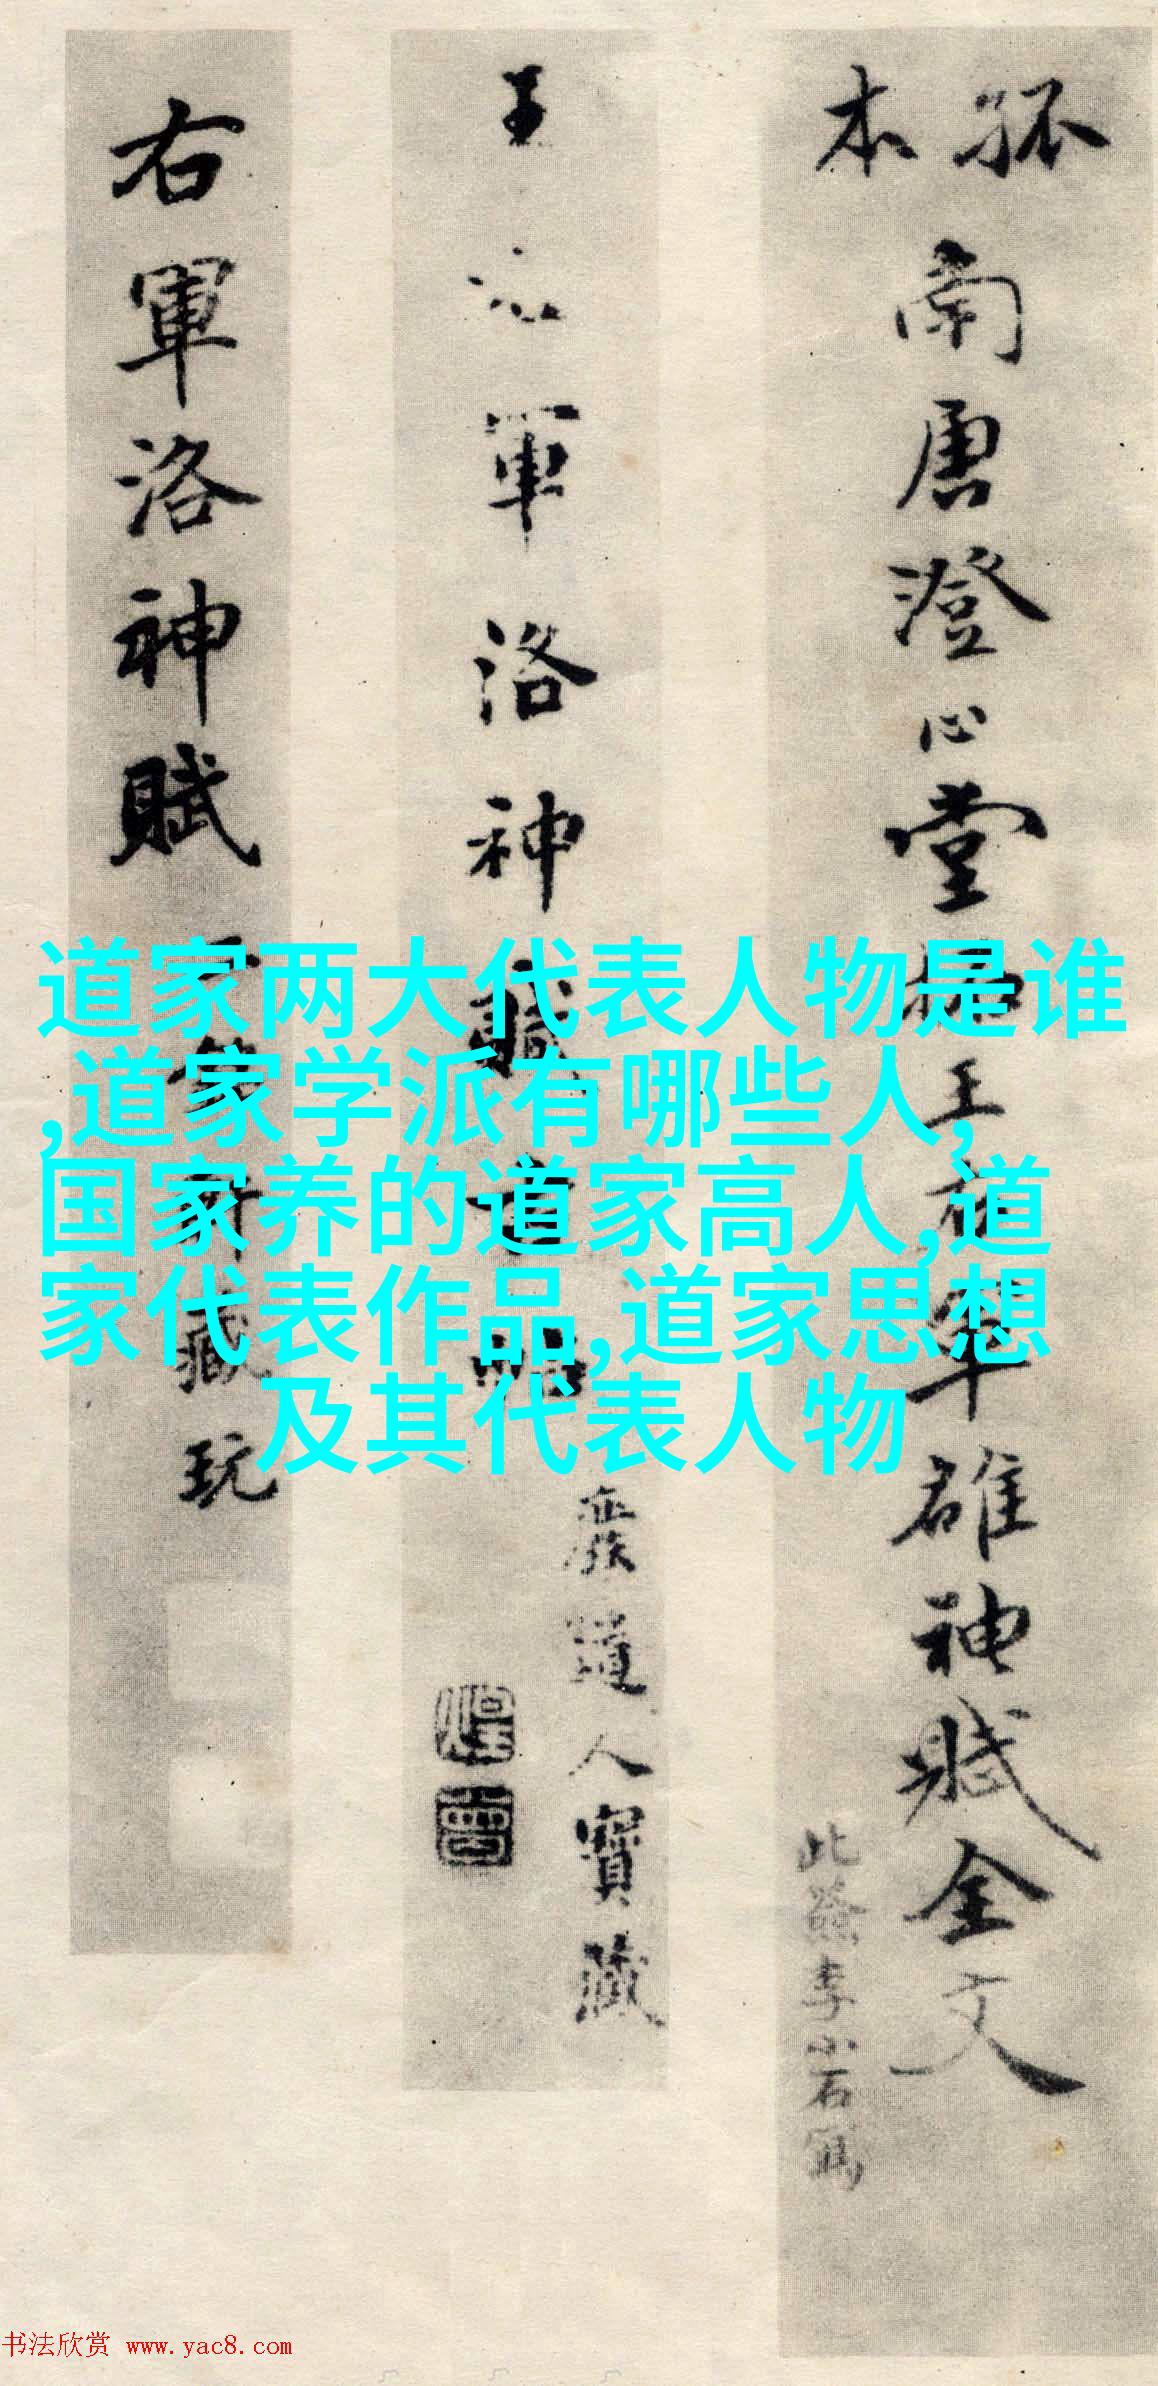 孤本
南唐澄心堂拓王右軍雒神賦全文
此籤李小石寫
王右軍洛神賦
廢道人寶藏
右軍洛神賦
藏玩
道家两大代表人物是谁
,道家学派有哪些人,
国家养的道家高人,道
家代表作品,道家思想
及其代表人物
书法欣赏 www.yac8.com